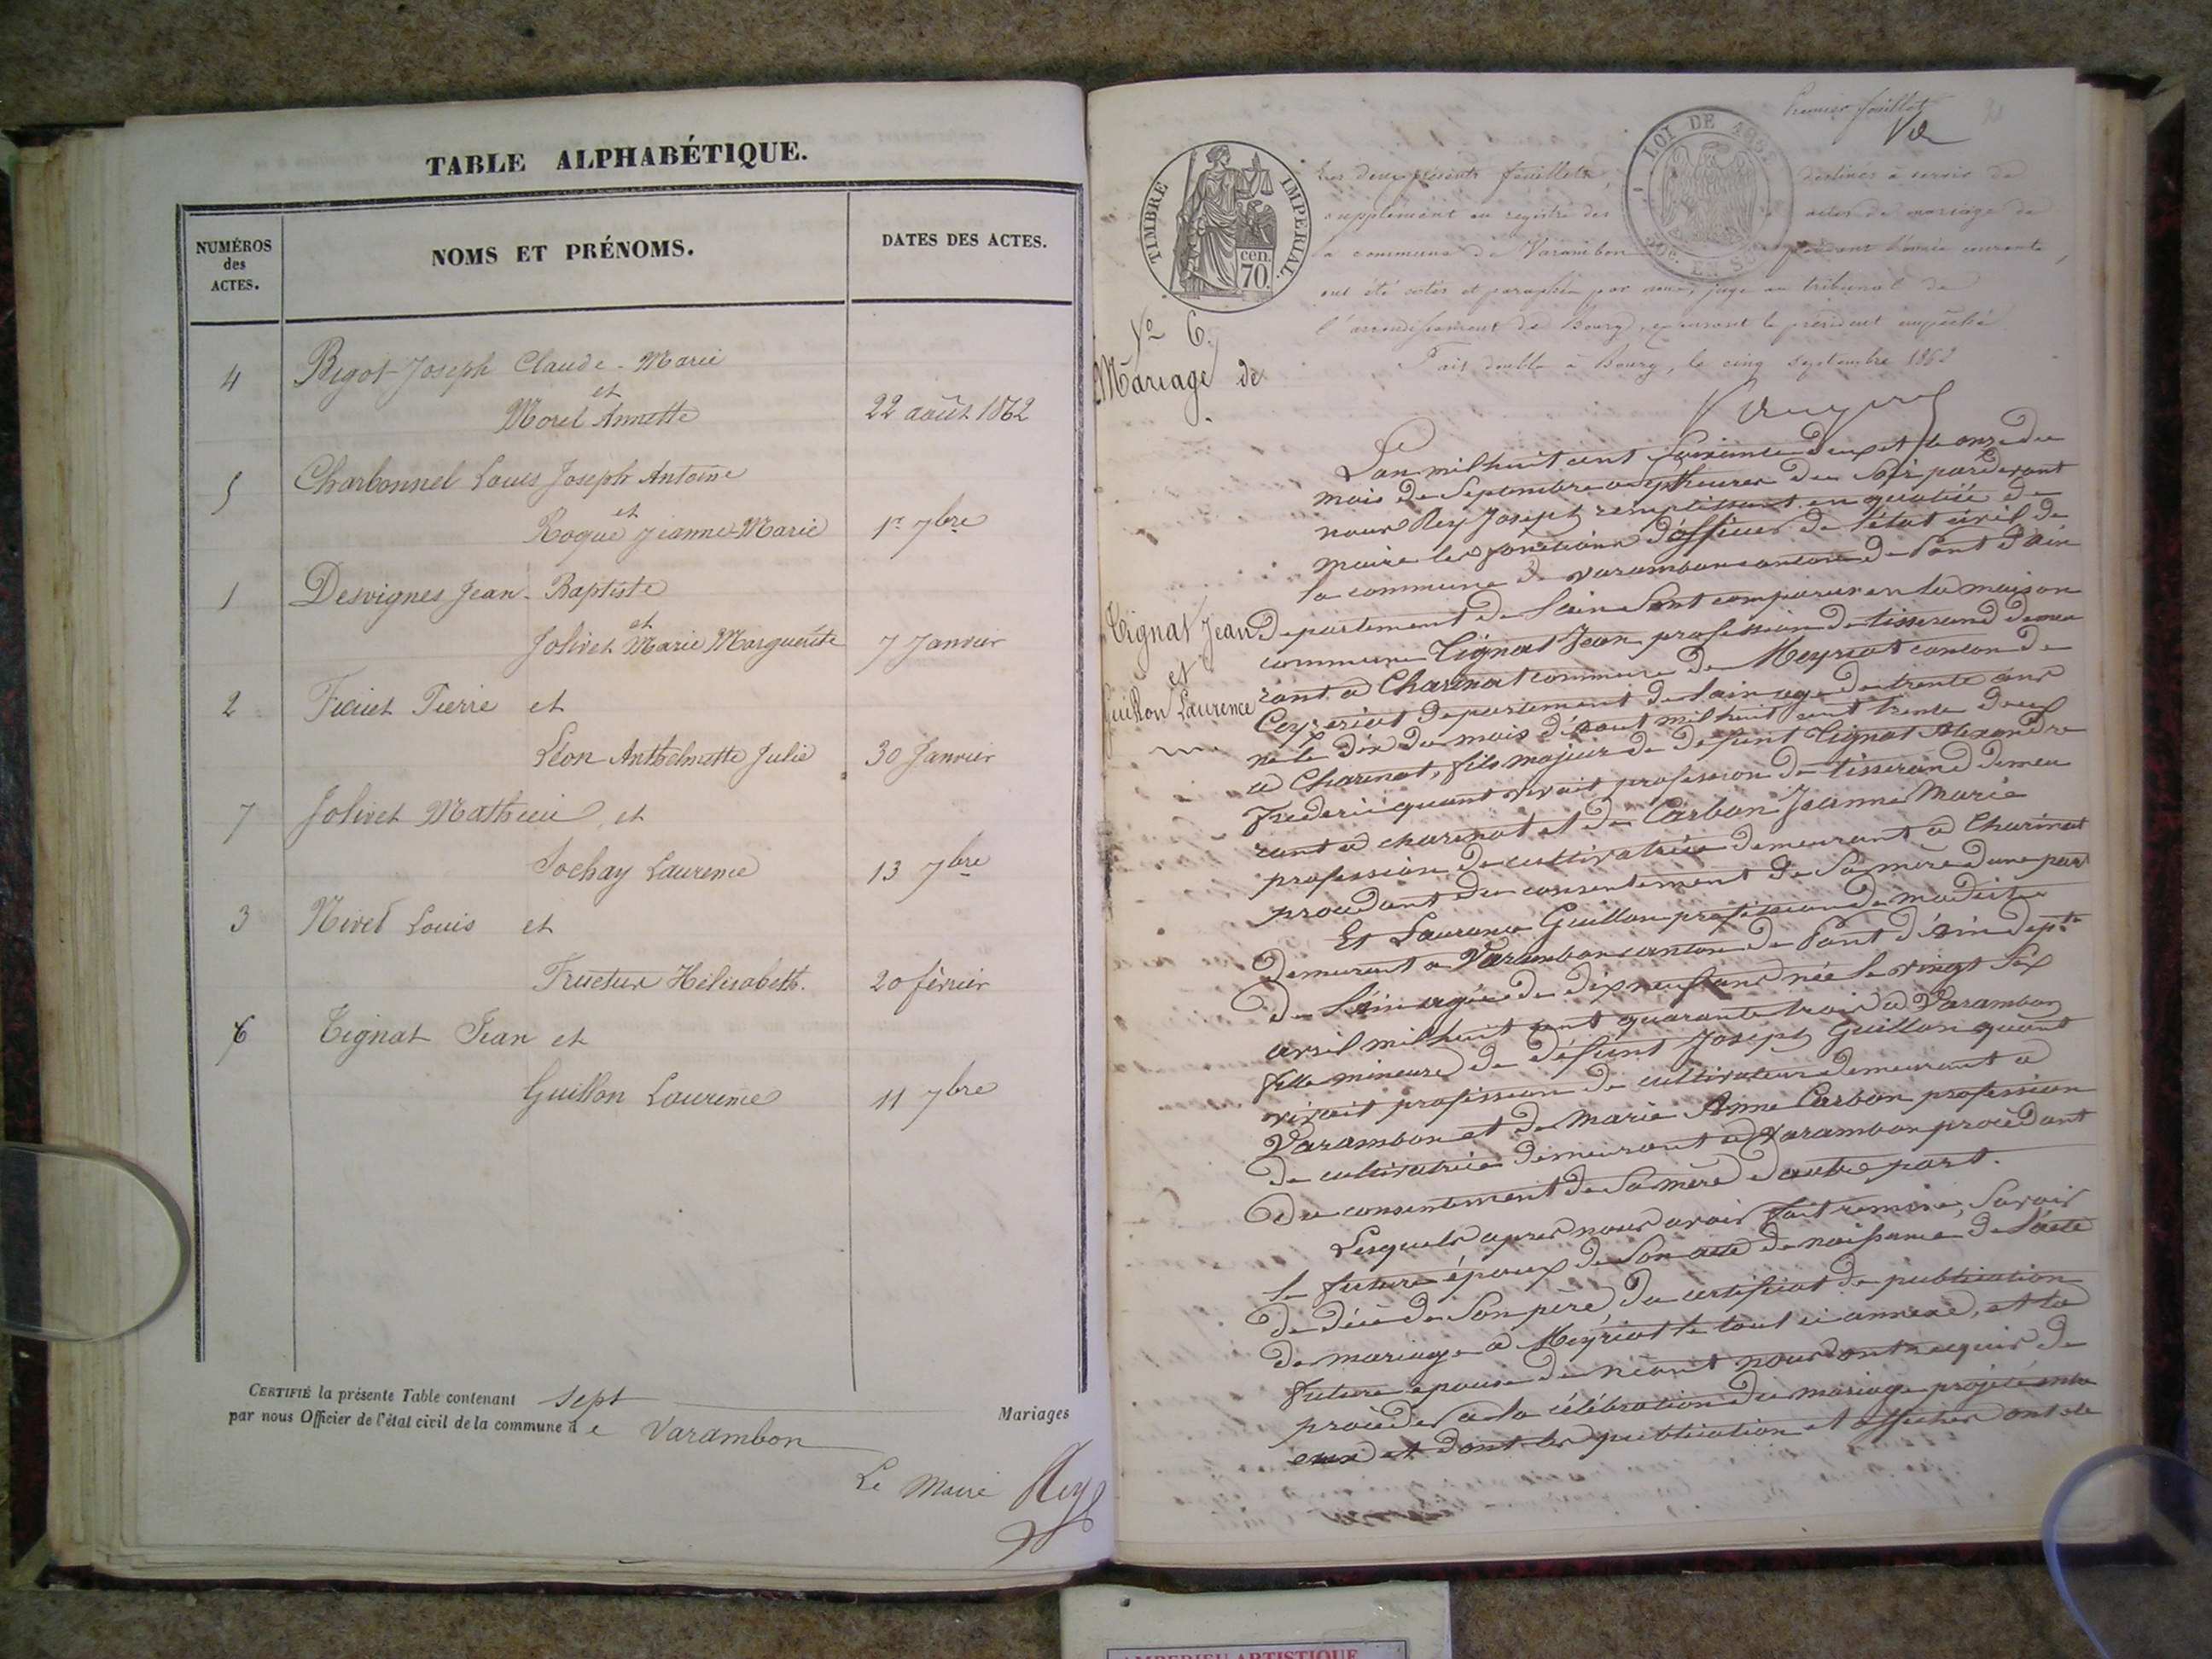 TABLE ALPHABÉTIQUE.
NUMÉROS
des
ACTES.
NOMS ET PRÉNOMS.
DATES DES ACTES.
4 Bigot Joseph Claude-Marie
et
Morel Annette 22 août 1862
5 Charbonnel Louis Joseph Antoine
et
Roque Jeanne-Marie 1er 7bre
1 Desvignes Jean-Baptiste
et
Jolivet Marie Marguerite 7 Janvier
2 Pierre et
Léon Anthelmette Julie 30 Janvier
7 Jolivet Mathieu et
Sochay Laurence 13 7bre
3 Nivet Louis et
Hélisabeth. 20 février
6 Tignat Jean et
Guillon Laurence 11 7bre
CERTIFIÉ la présente Table contenant sept Mariages
par nous Officier de l'état civil de la commune de Varambon
Le Maire Rey
Premier feuillet
TIMBRE IMPÉRIAL.
cen.
70.
LOI DE
EN SUS
Les deux présents feuillets, destinés à servir de
supplément au registre des actes de mariage de
la commune de Varambon pendant l'année courante,
ont été cotés et paraphés par nous, juge au tribunal de
l'arrondissement de Bourg, le président empêché
Fait double à Bourg, le cinq septembre 1862
No 6.
Mariage de
Tignat Jean
et
Guillon Laurence
L'an mil huit cent soixante deux et le onze du
mois de Septembre a sept heures du soir par devant
nous Rey Joseph remplissant en qualité de
maire les fonctions d'officier de l'état civil de
la commune de Varambon canton de Pont d'Ain
Departement de Lain sont comparus en la maison
commune Tignat Jean profession de tisserand demeu
rant a Charinat commune de Meyriat canton de
Ceyzeriat departement de Lain age de trente ans
né le dix du mois d'aout mil huit cent trente deux
a Charinat, fils majeur de defunt Tignat Alexandre
Frederic quant vivait profession de tisserand demeu
rant a charinat et de Carbon Jeanne Marie
profession de cultivatrice demeurant a Charinat
procedant du consentement de Sa mère d'une part
Et Laurence Guillon profession de modiste
demeurant a Varambon canton de Pont d'Ain dept
de Lain agée de dix neuf ans née le vingt six
avril mil huit cent quarante trois a Varambon
fille mineure de défunt Joseph Guillon quant
vivait profession de cultivateur demeurant a
Varambon et de Marie Anne Carbon profession
de cultivatrice demeurant a Varambon procédant
du consentement de Sa mère d'autre part.
Lesquels apres nous avoir fait remise, Savoir
le future époux de Son acte de naissance de l'acte
de décè de Son père, du certificat de publication
de mariage a Meyriat le tout ci annexé, et la
future epouse de néant nous ont requis de
procéder a la célébration du mariage projeté entre
eux et dont les publication et affiches ont été
AMBERIEU ARTISTIQUE